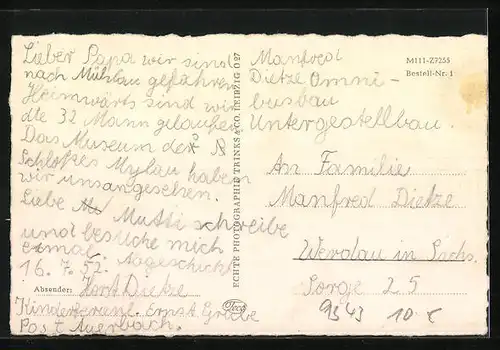 Lieber Papa wir sind
nach Mühlau gefahren
Heimwärts sind wir
die 32 Mann gelaufen
Das Museum des
Schloßes Mylau haben
wir unsangesehen.
Liebe Mutti schreibe
und besuche mich
einmal. Abgeschickt
16.7.52.
Absender: Horst Dietze
Kinderferienl. Ernst Grube
Post Auerbach.
ECHTE PHOTOGRAPHIE TRINKS & CO. LEIPZIG O 27
Trico
M111-Z7255
Bestell-Nr. 1
Manfred
Dietze Omni-
busbau
Untergestellbau.
An Familie
Manfred Dietze
Werdau in Sachs.
Sorge 25
9343 10